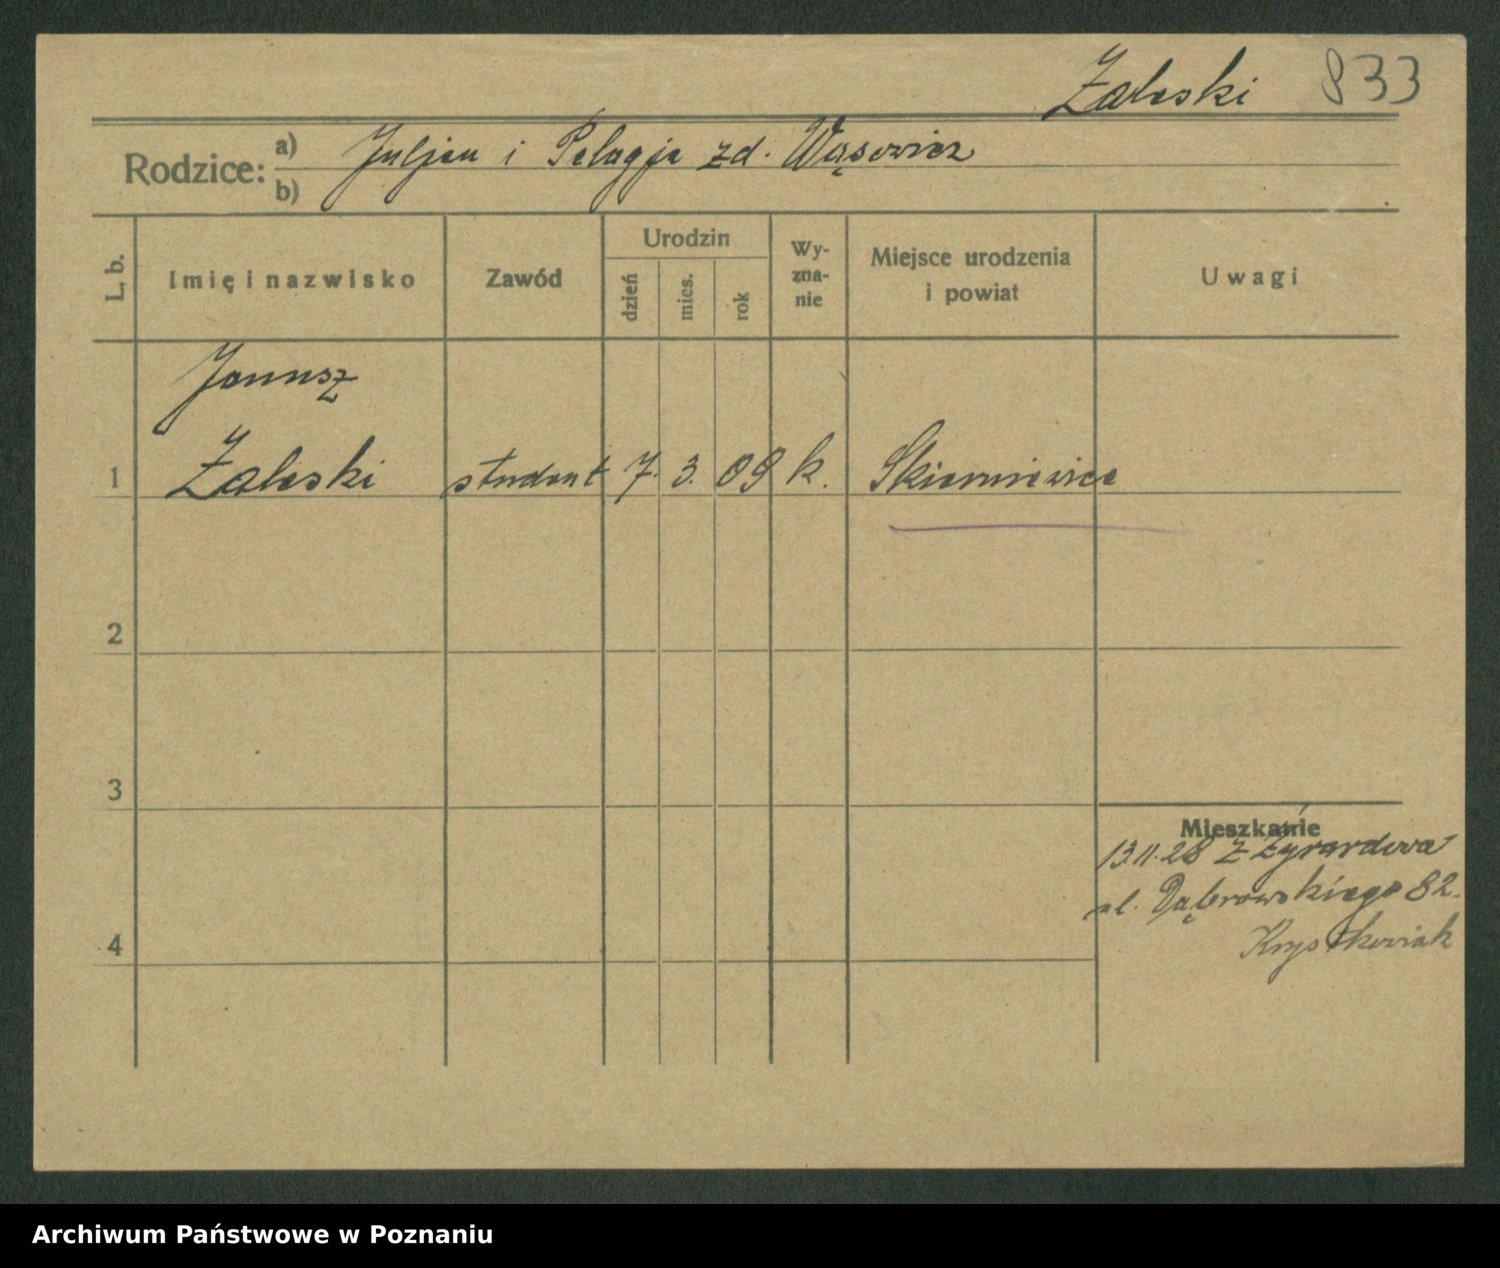 Zaleski 833
Rodzice: a) Juljan i Pelagja zd. Wąsowicz
b)
L. b. Imię i nazwisko Zawód Urodzin dzień mies. rok Wy-zna-nie Miejsce urodzenia i powiat Uwagi
Janusz
1 Zaleski student 7. 3. 09 k. Skierniewice
2
3
Mieszkanie
13.11.28 z Żyrardowa
ul. Dąbrowskiego 82.
4 Krystkowiak
Archiwum Państwowe w Poznaniu